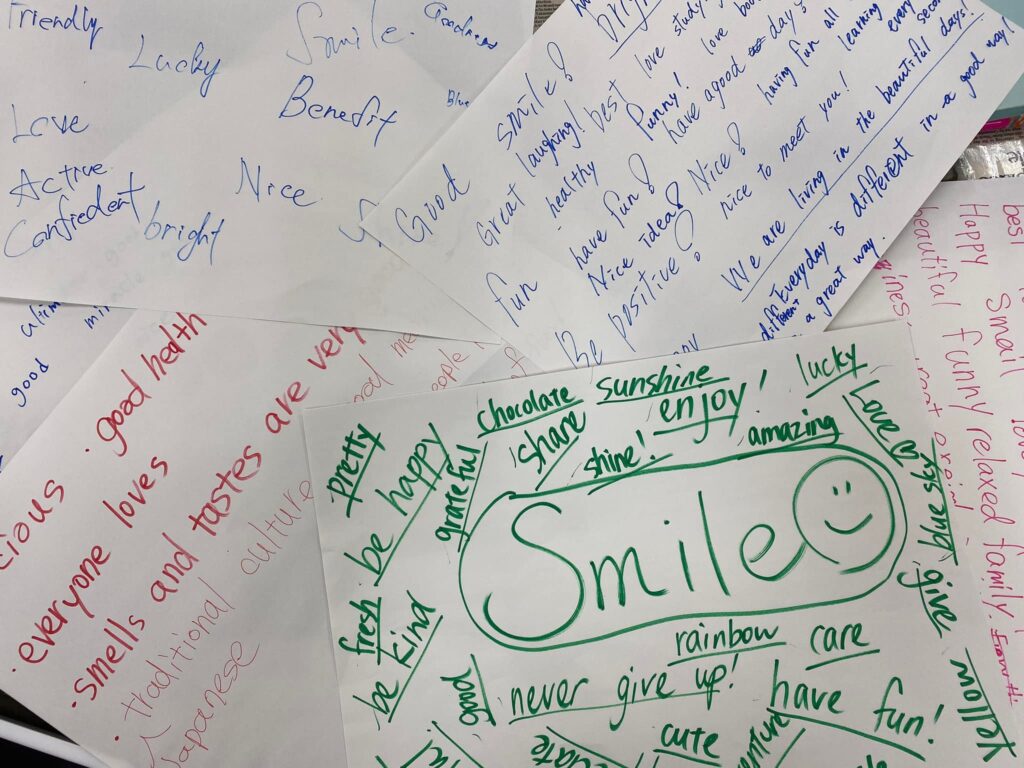 Friendly
Lucky
Smile.
Goodness
Love
Benefit
Blue
Active
Confiedent
Nice
bright
Good smile!
Great laughing!
- healthy best love study
fun have fun! Punny! love
Nice idea! Nice! have a good days
having fun all learning every second
Be positive! nice to meet you!
We are living in the beautiful days!
Everyday is different in a good way!
different a great way.
good
cious . good health
. everyone loves
. smells and tastes are very
. traditional culture
Japanese
best
Happy Small
beautiful funny relaxed family.
chocolate sunshine lucky
pretty share enjoy! Love
be happy shine! amazing
grateful
Smile
blue sky
fresh give
be kind
rainbow care
good never give up! have fun!
Yellow
cute